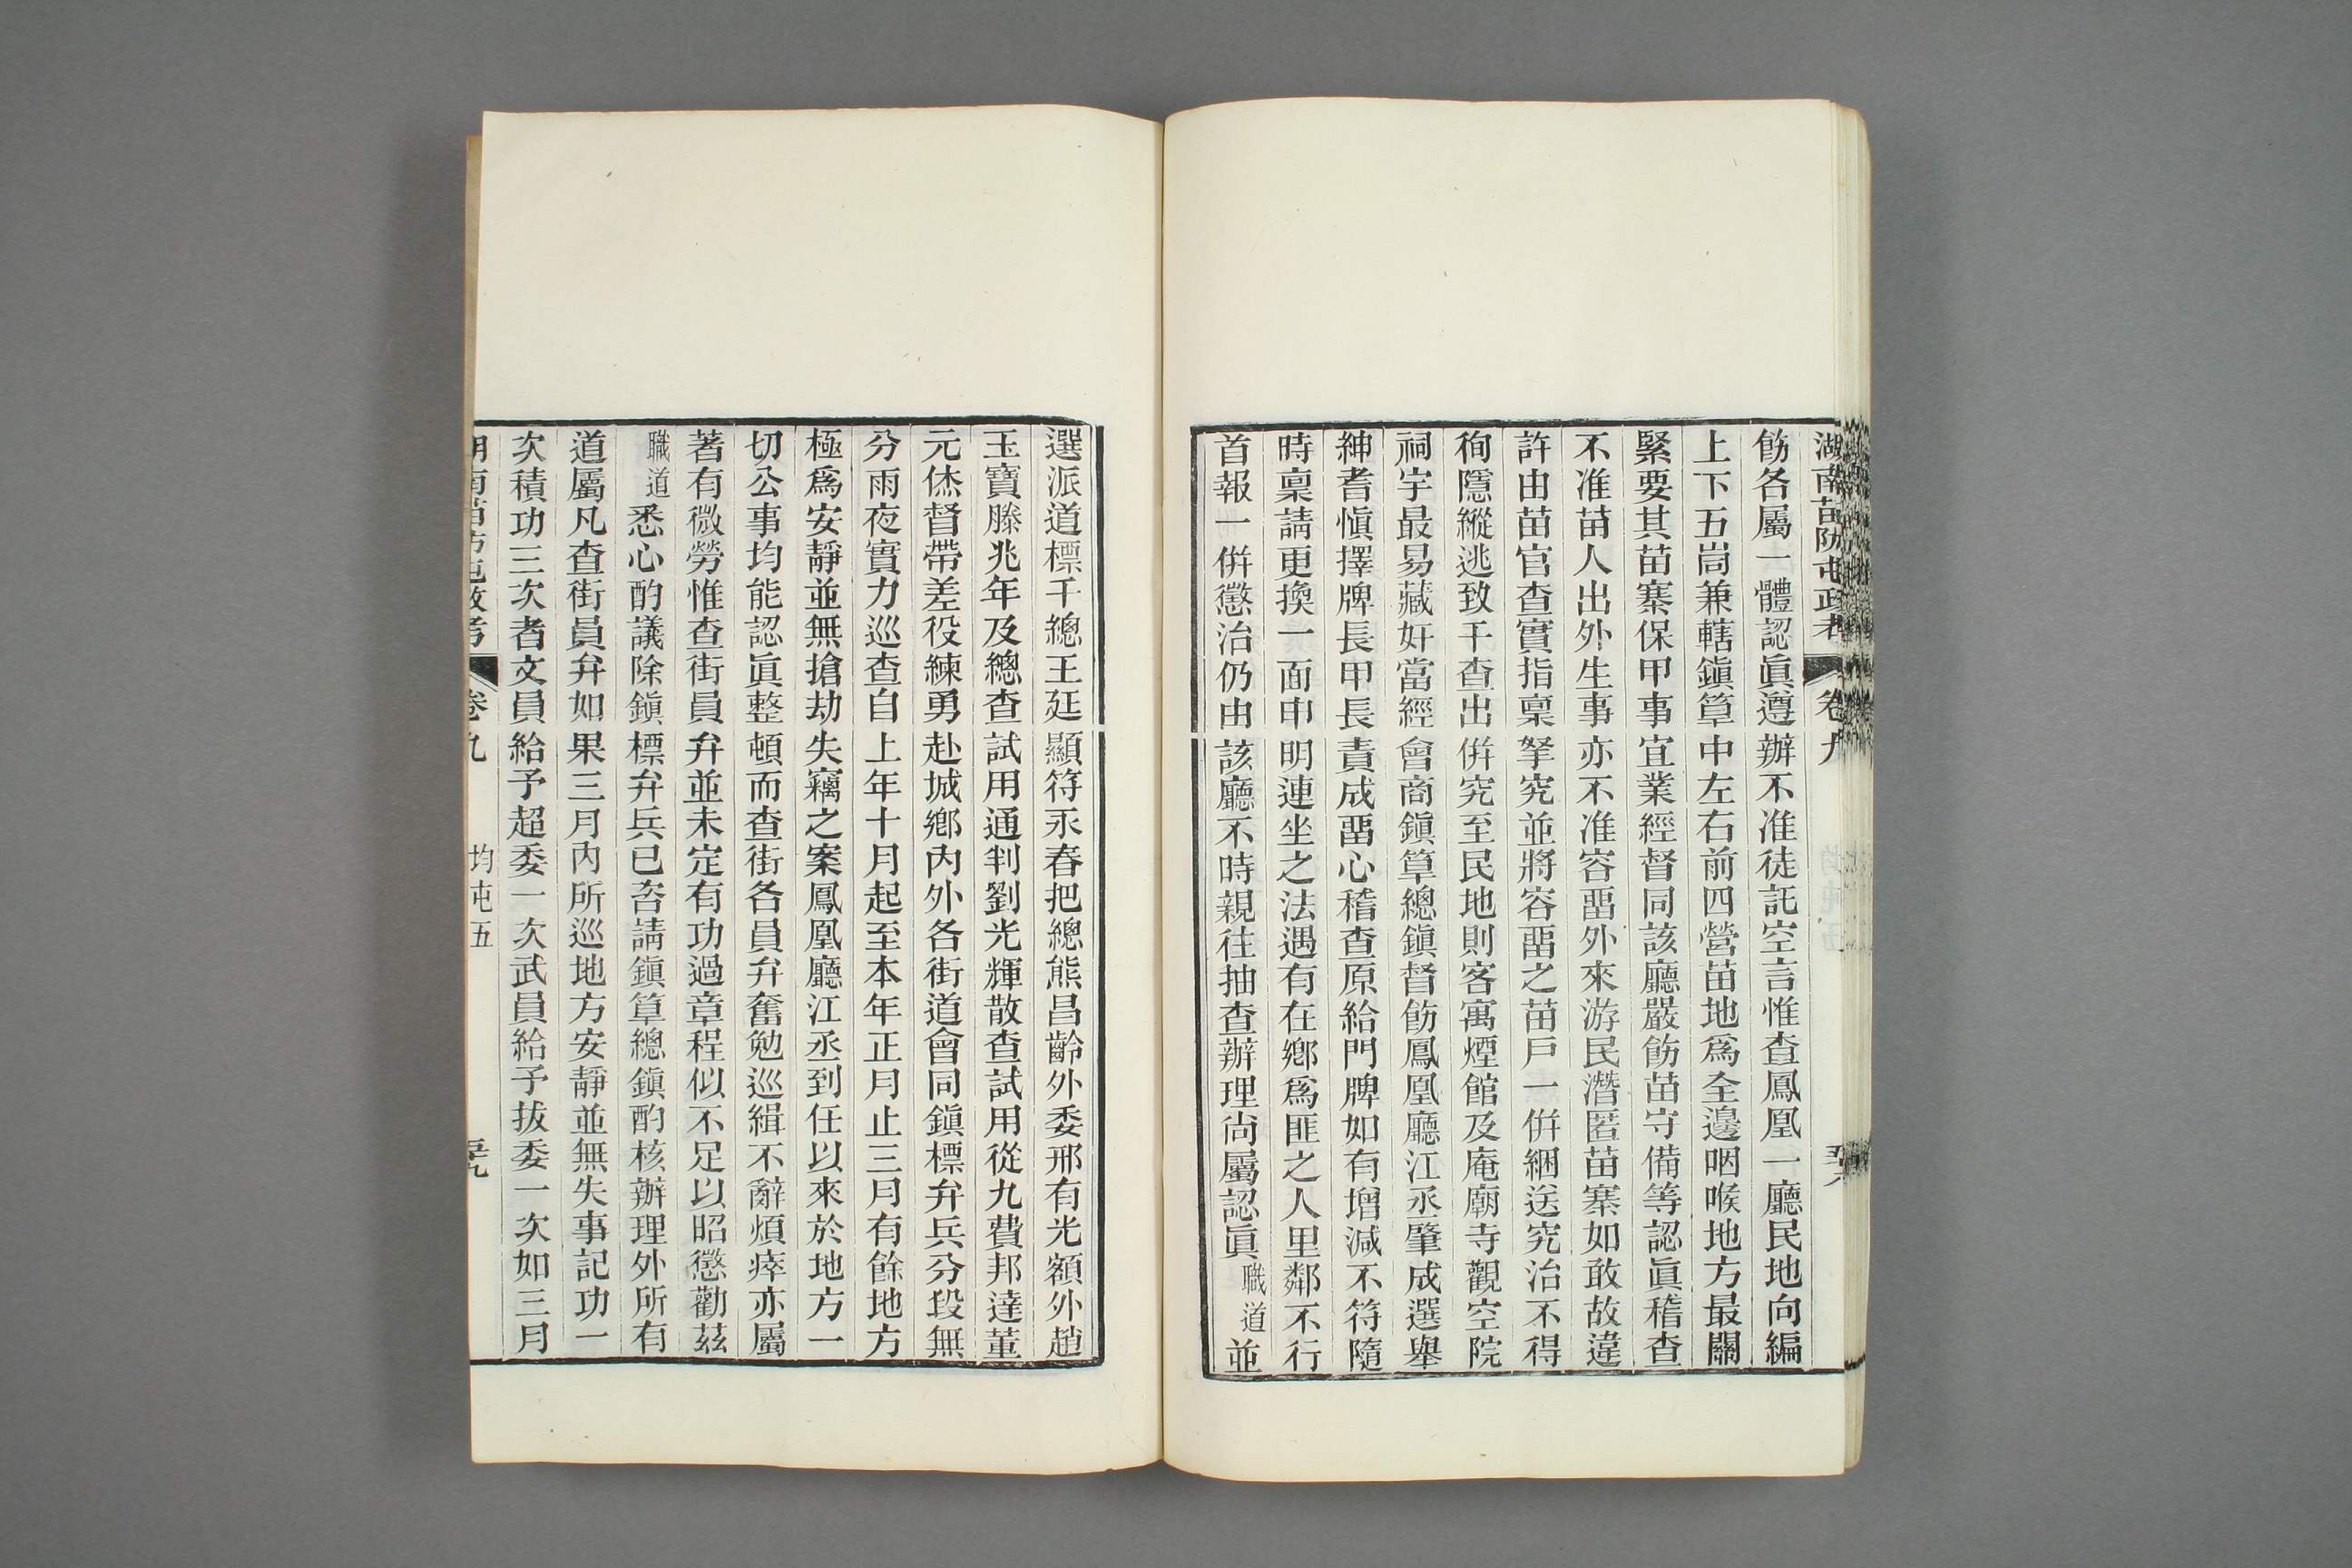 湖南苗防屯政考 卷九
飭各屬一體認眞遵辦不准徒託空言惟查鳳凰一廳民地向編
上下五峝兼轄鎭筸中左右前四營苗地爲全邊咽喉地方最關
緊要其苗寨保甲事宜業經督同該廳嚴飭苗守備等認眞稽查
不准苗人出外生事亦不准容畱外來游民潛匿苗寨如敢故違
許由苗官查實指稟拏究並將容畱之苗戶一倂綑送究治不得
徇隱縱逃致干查出倂究至民地則客寓煙館及庵廟寺觀空院
祠宇最易藏奸當經會商鎭筸總鎭督飭鳳凰廳江丞肇成選舉
紳耆愼擇牌長甲長責成畱心稽查原給門牌如有增減不符隨
時稟請更換一面申明連坐之法遇有在鄉爲匪之人里鄰不行
首報一倂懲治仍由該廳不時親往抽查辦理尙屬認眞職道並
選派道標千總王廷顯符永春把總熊昌齡外委邢有光額外趙
玉寶滕兆年及總查試用通判劉光輝散查試用從九費邦達董
元烋督帶差役練勇赴城鄉內外各街道會同鎭標弁兵分段無
分雨夜實力巡查自上年十月起至本年正月止三月有餘地方
極爲安靜並無搶劫失竊之案鳳凰廳江丞到任以來於地方一
切公事均能認眞整頓而查街各員弁奮勉巡緝不辭煩瘁亦屬
著有微勞惟查街員弁並未定有功過章程似不足以昭懲勸茲
職道悉心酌議除鎭標弁兵已咨請鎭筸總鎭酌核辦理外所有
道屬凡查街員弁如果三月內所巡地方安靜並無失事記功一
次積功三次者文員給予超委一次武員給予拔委一次如三月
湖南苗防屯政考 卷九 均屯五 五十九